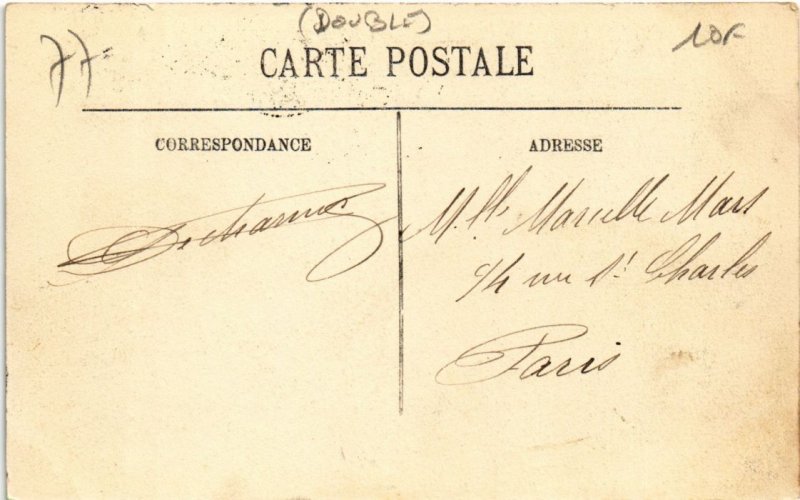 (DOUBLE)
77
10F
CARTE POSTALE
CORRESPONDANCE
ADRESSE
Mlle Marcelle Mars
rue St Charles
Paris